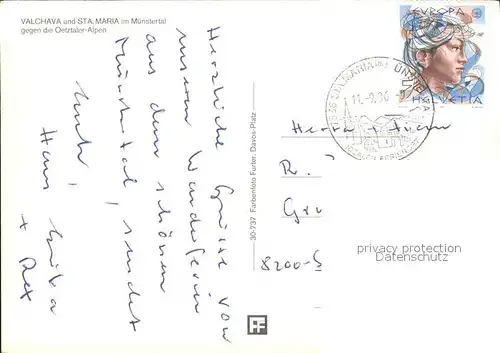 VALCHAVA und STA. MARIA im Münstertal
gegen die Oetztaler-Alpen
Herzliche Grüsse von
unseren Wanderferien
aus dem schönen
Münstertal, sendet
Euch,
Hans Erika
+ Rex
30-737 Farbenfoto Furter, Davos-Platz
EUROPA
HELVETIA
STA. MARIA IM MÜNSTERTAL
11.-9.86
Herrn + Frau
R.
Gr
8200-S
privacy protection
Datenschutz
F